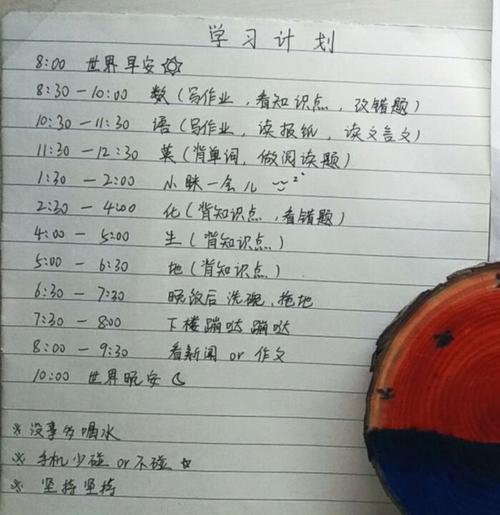 学习计划
8:00 世界早安
8:30 — 10:00 数（写作业，看知识点，改错题）
10:30 — 11:30 语（写作业，读报纸，读文言文）
11:30 — 12:30 英（背单词，做阅读题）
1:30 — 2:00 小眯一会儿
2:30 — 4:00 化（背知识点，看错题）
4:00 — 5:00 生（背知识点）
5:00 — 6:30 地（背知识点）
6:30 — 7:30 晚饭后 洗碗，拖地
7:30 — 8:00 下楼蹦哒蹦哒
8:00 — 9:30 看新闻 or 作文
10:00 世界晚安
※ 没事多喝水
※ 手机少碰 or 不碰 ☆
※ 坚持坚持